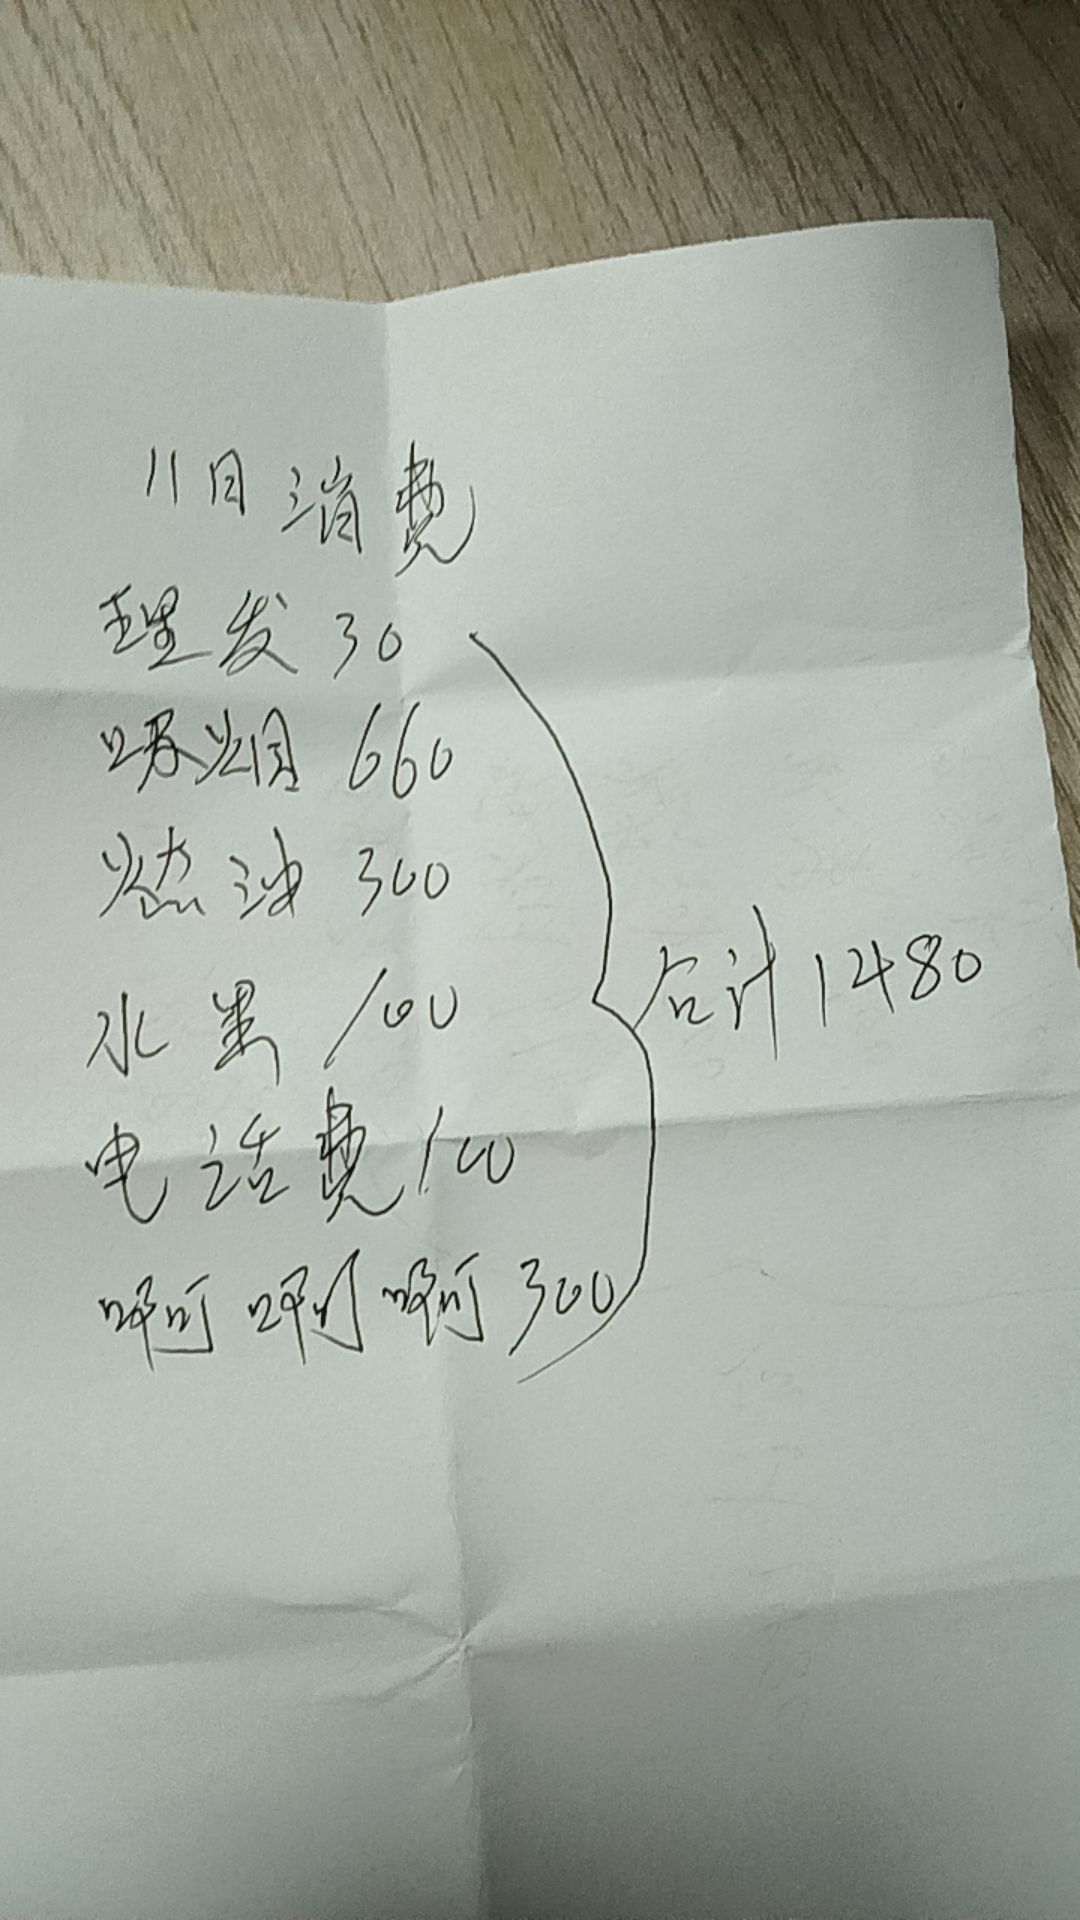 11月消费
理发 30
吸烟 660
燃油 300
水果 100
电话费 100
啊啊啊 300
合计 1480